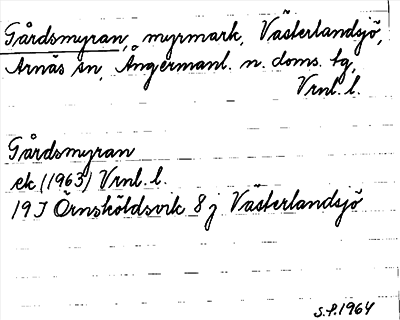 Gårdsmyran, myrmark, Västerlandsjö,
Arnäs sn, Ångermanl. n. doms. tg,
Vrnl. l.
Gårdsmyran
ek (1963) Vrnl. l.
19 J Örnsköldsvik 8 j Västerlandsjö
S.P. 1964